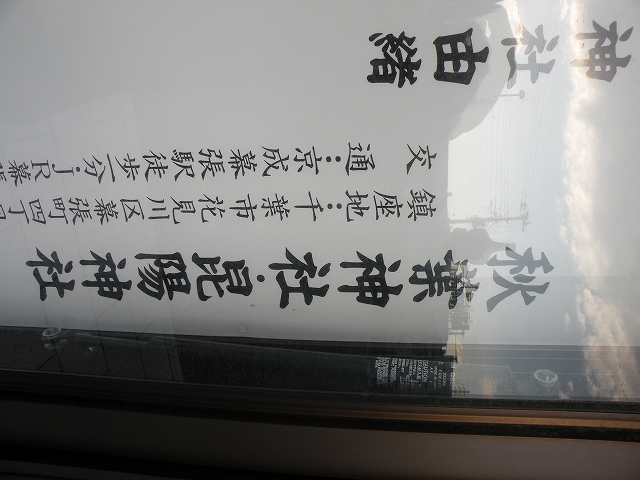 秋葉神社・昆陽神社
鎮座地：千葉市花見川区幕張町四丁目
交通：京成幕張駅徒歩一分・JR幕張
神社由緒